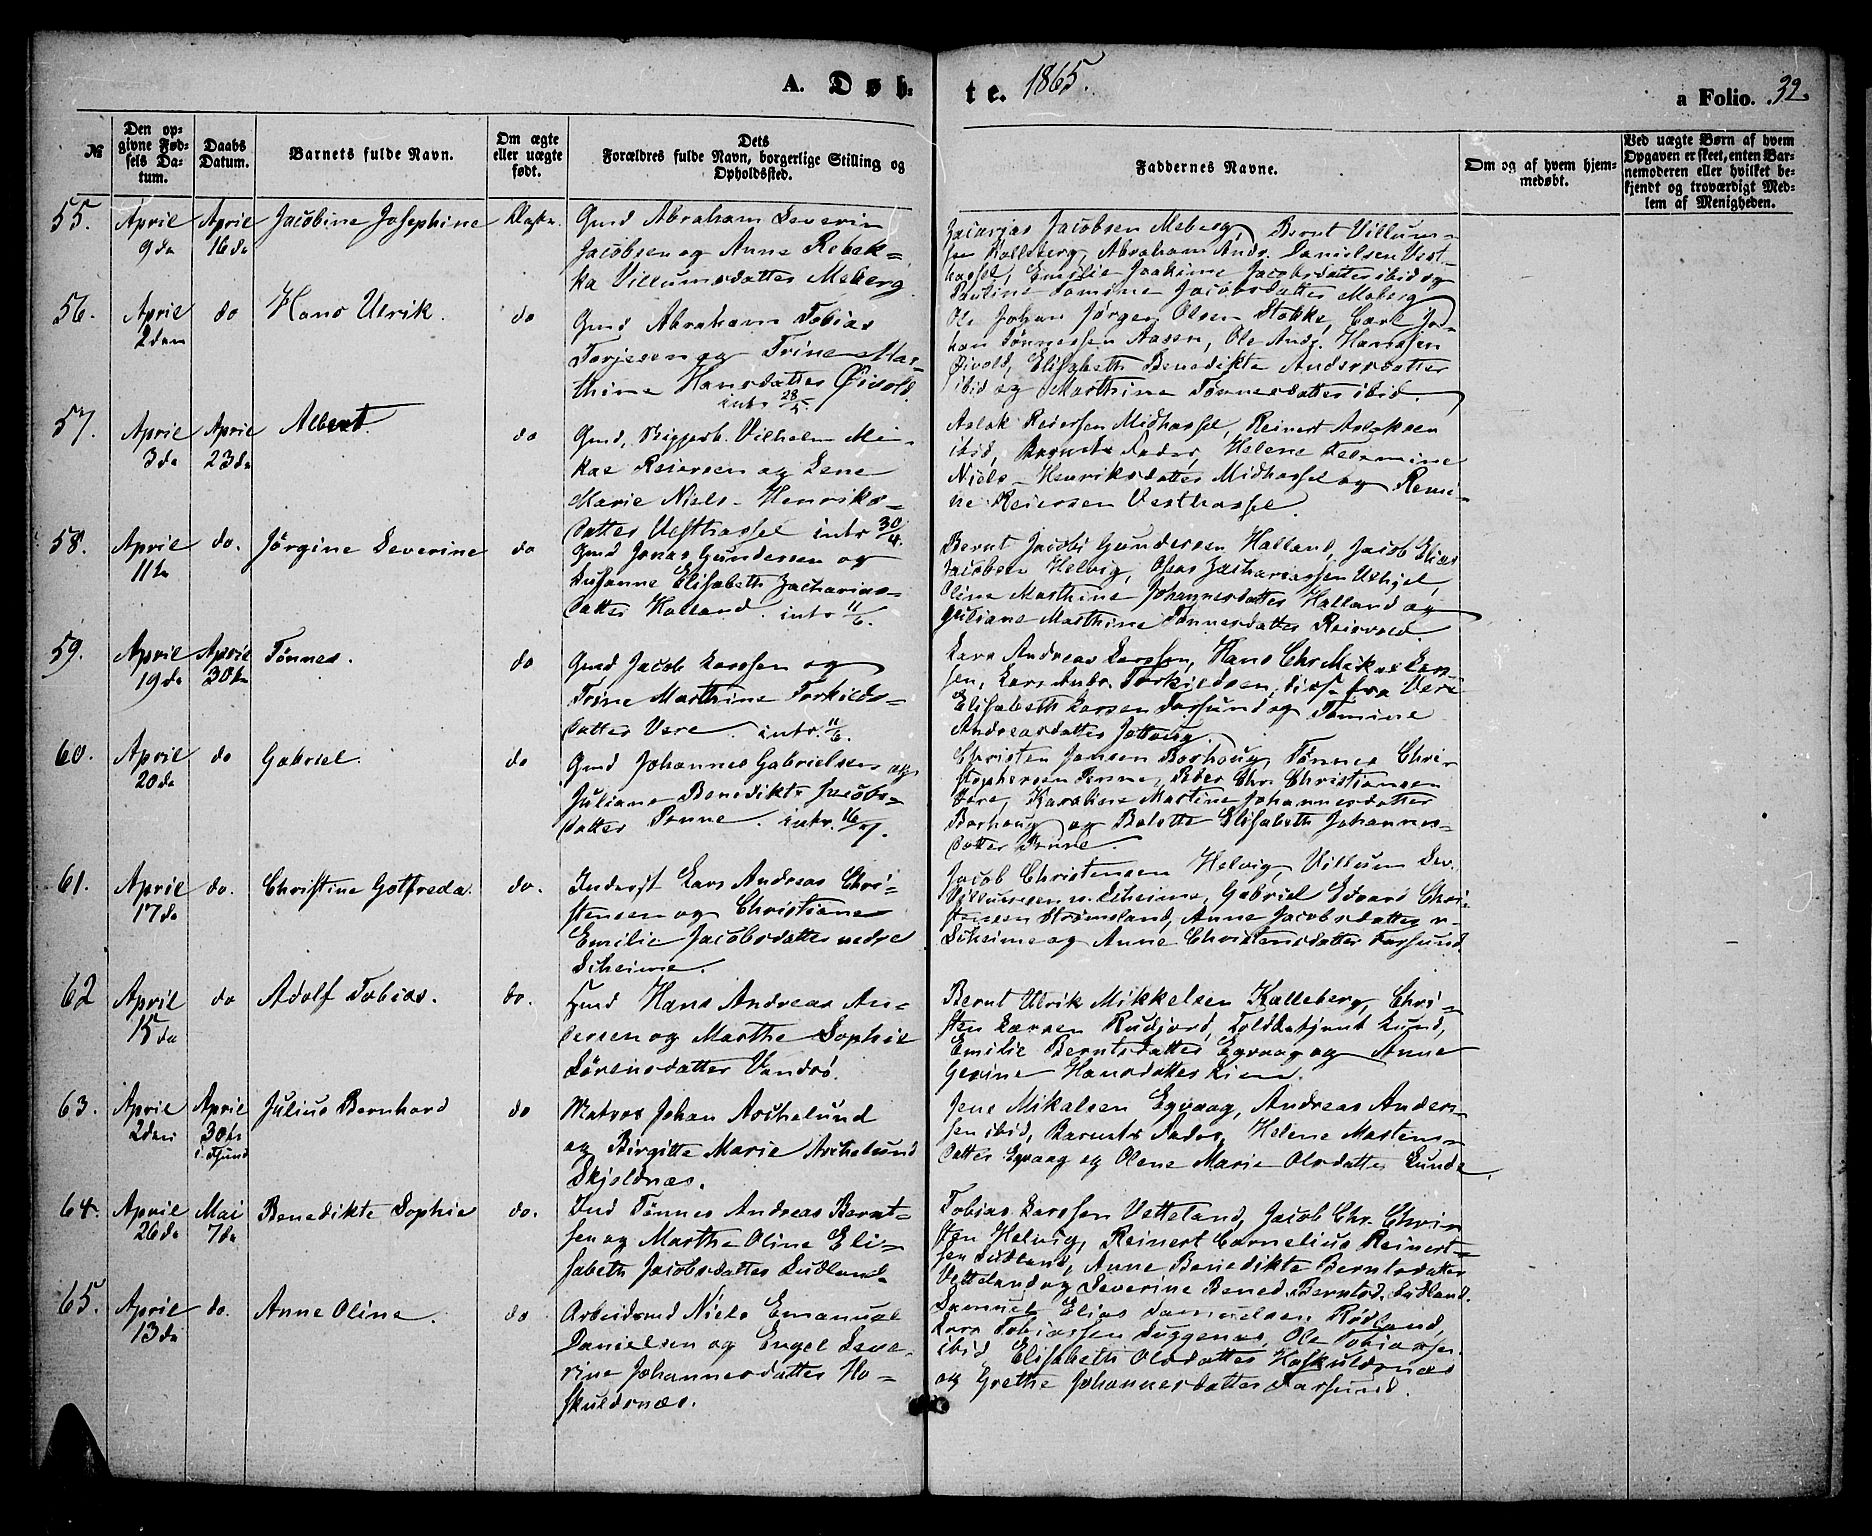 A. Døb-
te. 1865.
a Folio. 32.
№
Den op-
givne Fød-
sels Da-
tum.
Daabs
Datum.
Barnets fulde Navn.
Om ægte
eller uægte
født.
Dets
Forældres fulde Navn, borgerlige Stilling og
Opholdssted.
Faddernes Navne.
Om og af hvem hjem-
medøbt.
Ved uægte Børn af hvem
Opgaven er skeet, enten Bar-
nemoderen eller hvilket be-
kjendt og troværdigt Med-
lem af Menigheden.
55.
April
9de
April
16de
Jacobine Josephine
Gmd Abraham Severin
Jacobsen og Anne Rebek-
ka Villumsdatter Meberg
Zacarias Jacobsen Meberg, Bernt Villum-
sen Kalleberg, Abraham Andr. Danielsen Vest-
hassel, Emilie Joakime Jacobsdatter ibid og
Pauline Tomine Jacobsdatter Meberg
56.
April
2den
do
Hans Ulrik.
do
Gmd Abraham Tobias
Torjesen og Trine Mar-
thine Hansdatter Øivold.
intr 28/5.
Ole Johan Jørgen Olsen Stokke, Carl Jo-
han Tønnessen Aasen, Ole Andr. Hanssen
Øivold, Elisabeth Benedikte Andersdatter
ibid og Marthine Tønnesdatter ibid.
57.
April
3de
April
23de
Albert.
do
Gmd. Vilhelm Mi-
kal Reiersen og Lene
Marie Niels-Henriks-
datter Vesthassel intr 30/4.
Aslak Reiersen Midhassel, Reinert Aslaksen
ibid, Barnets Fader, Helene Telomine
Niels-Henriksdatter Midhassel og Remi-
ne Reiersen Vesthassel.
58.
April
11te
do.
Jørgine Severine
do
Gmd Jonas Gundersen og
Susanne Elisabeth Zacharias-
datter Halland. intr 11/6.
Bernt Jacobi Gundersen Halland, Jacob Elias
Jacobsen Helvig, Osias Zachariassen
Oline Marthine Johannesdatter Halland og
Juliane Marthine Tønnesdatter Reisvold.
59.
April
19de
April
30te
Tønnes.
do
Gmd Jacob Larssen og
Trine Marthine Torkilds-
datter Vere. intr. 11/6.
Lars Andreas Larssen, Hans Chr Mikal Lars-
sen, Lars Andr. Torkildsen, disse fra Vere
Elisabeth Larsen Farsund og Tomine
Andreasdatter Jøllestø.
60.
April
20de
do
Gabriel.
do
Gmd Johannes Gabrielsen og
Juliane Benedikte Jacobs-
datter Penne. intr. 16/7.
Christen Jansen Borhaug, Tønnes Chri-
stophersen Penne, Peder Chr. Christiansen
Bore, Karoline Martine Johannesdatter
Borhaug og Bolette Elisabeth Johannes-
datter Penne.
61.
April
17de
do.
Christine Gotfreda.
do.
Inderst Lars Andreas Chri-
stensen og Christiane
Emilie Jacobsdatter nedre
Skeime.
Jacob Christensen Helvig, Villum Sev.
Villumsen n. Skeime, Gabriel Edvard Chri-
stensen Strømsland, Anne Jacobsdatter n-
Skeime og Anne Christensdatter Farsund.
62
April
15de
do
Adolf Tobias.
do.
Hmd Hans Andreas An-
dersen og Marthe Sophie
Sørensdatter Vandsø.
Bernt Ulrik Mikkelsen Kalleberg, Chri-
sten Larsen Rudjord, Toldbetjent Lund,
Emilie Berntsdatter Egvaag og Anne
Gesine Hansdatter Lien.
63.
April
2den
April
30te
i Fsund
Julius Bernhard
do
Matros Johan Aschelund
og Birgitte Marie Aschelund
Skjoldnæs.
Jens Mikalsen Egvaag, Andreas Ander-
sen ibid, Barnets Fader, Helene Martens-
datter Egvaag og Olene Marie Olsdatter Lunde.
64.
April
26de
Mai
7de
Benedikte Sophie
do.
Ind Tønnes Andreas Bernt-
sen og Marthe Oline Eli-
sabeth Jacobsdatter Sudland
Tobias Larssen Vetteland, Jacob Chr. Chri-
sten Helvig, Reinert Cornelius Reinert-
sen Sudland, Anne Benedikte Berntsdatter
Vetteland og Severine Bened. Berntsd. Sudland.
65.
April
13de
do.
Anne Oline.
do
Arbeidsmd Niels Emanuel
Danielsen og Engel Seve-
rine Johannesdatter Ho-
skuldsnæs.
Samuel Elias Samuelsen Rødland,
Lars Tobiassen Duggenæs, Ole Tobiassen
ibid Elisabeth Olsdatter Hoskuldsnæs
og Grethe Johannesdatter Farsund.